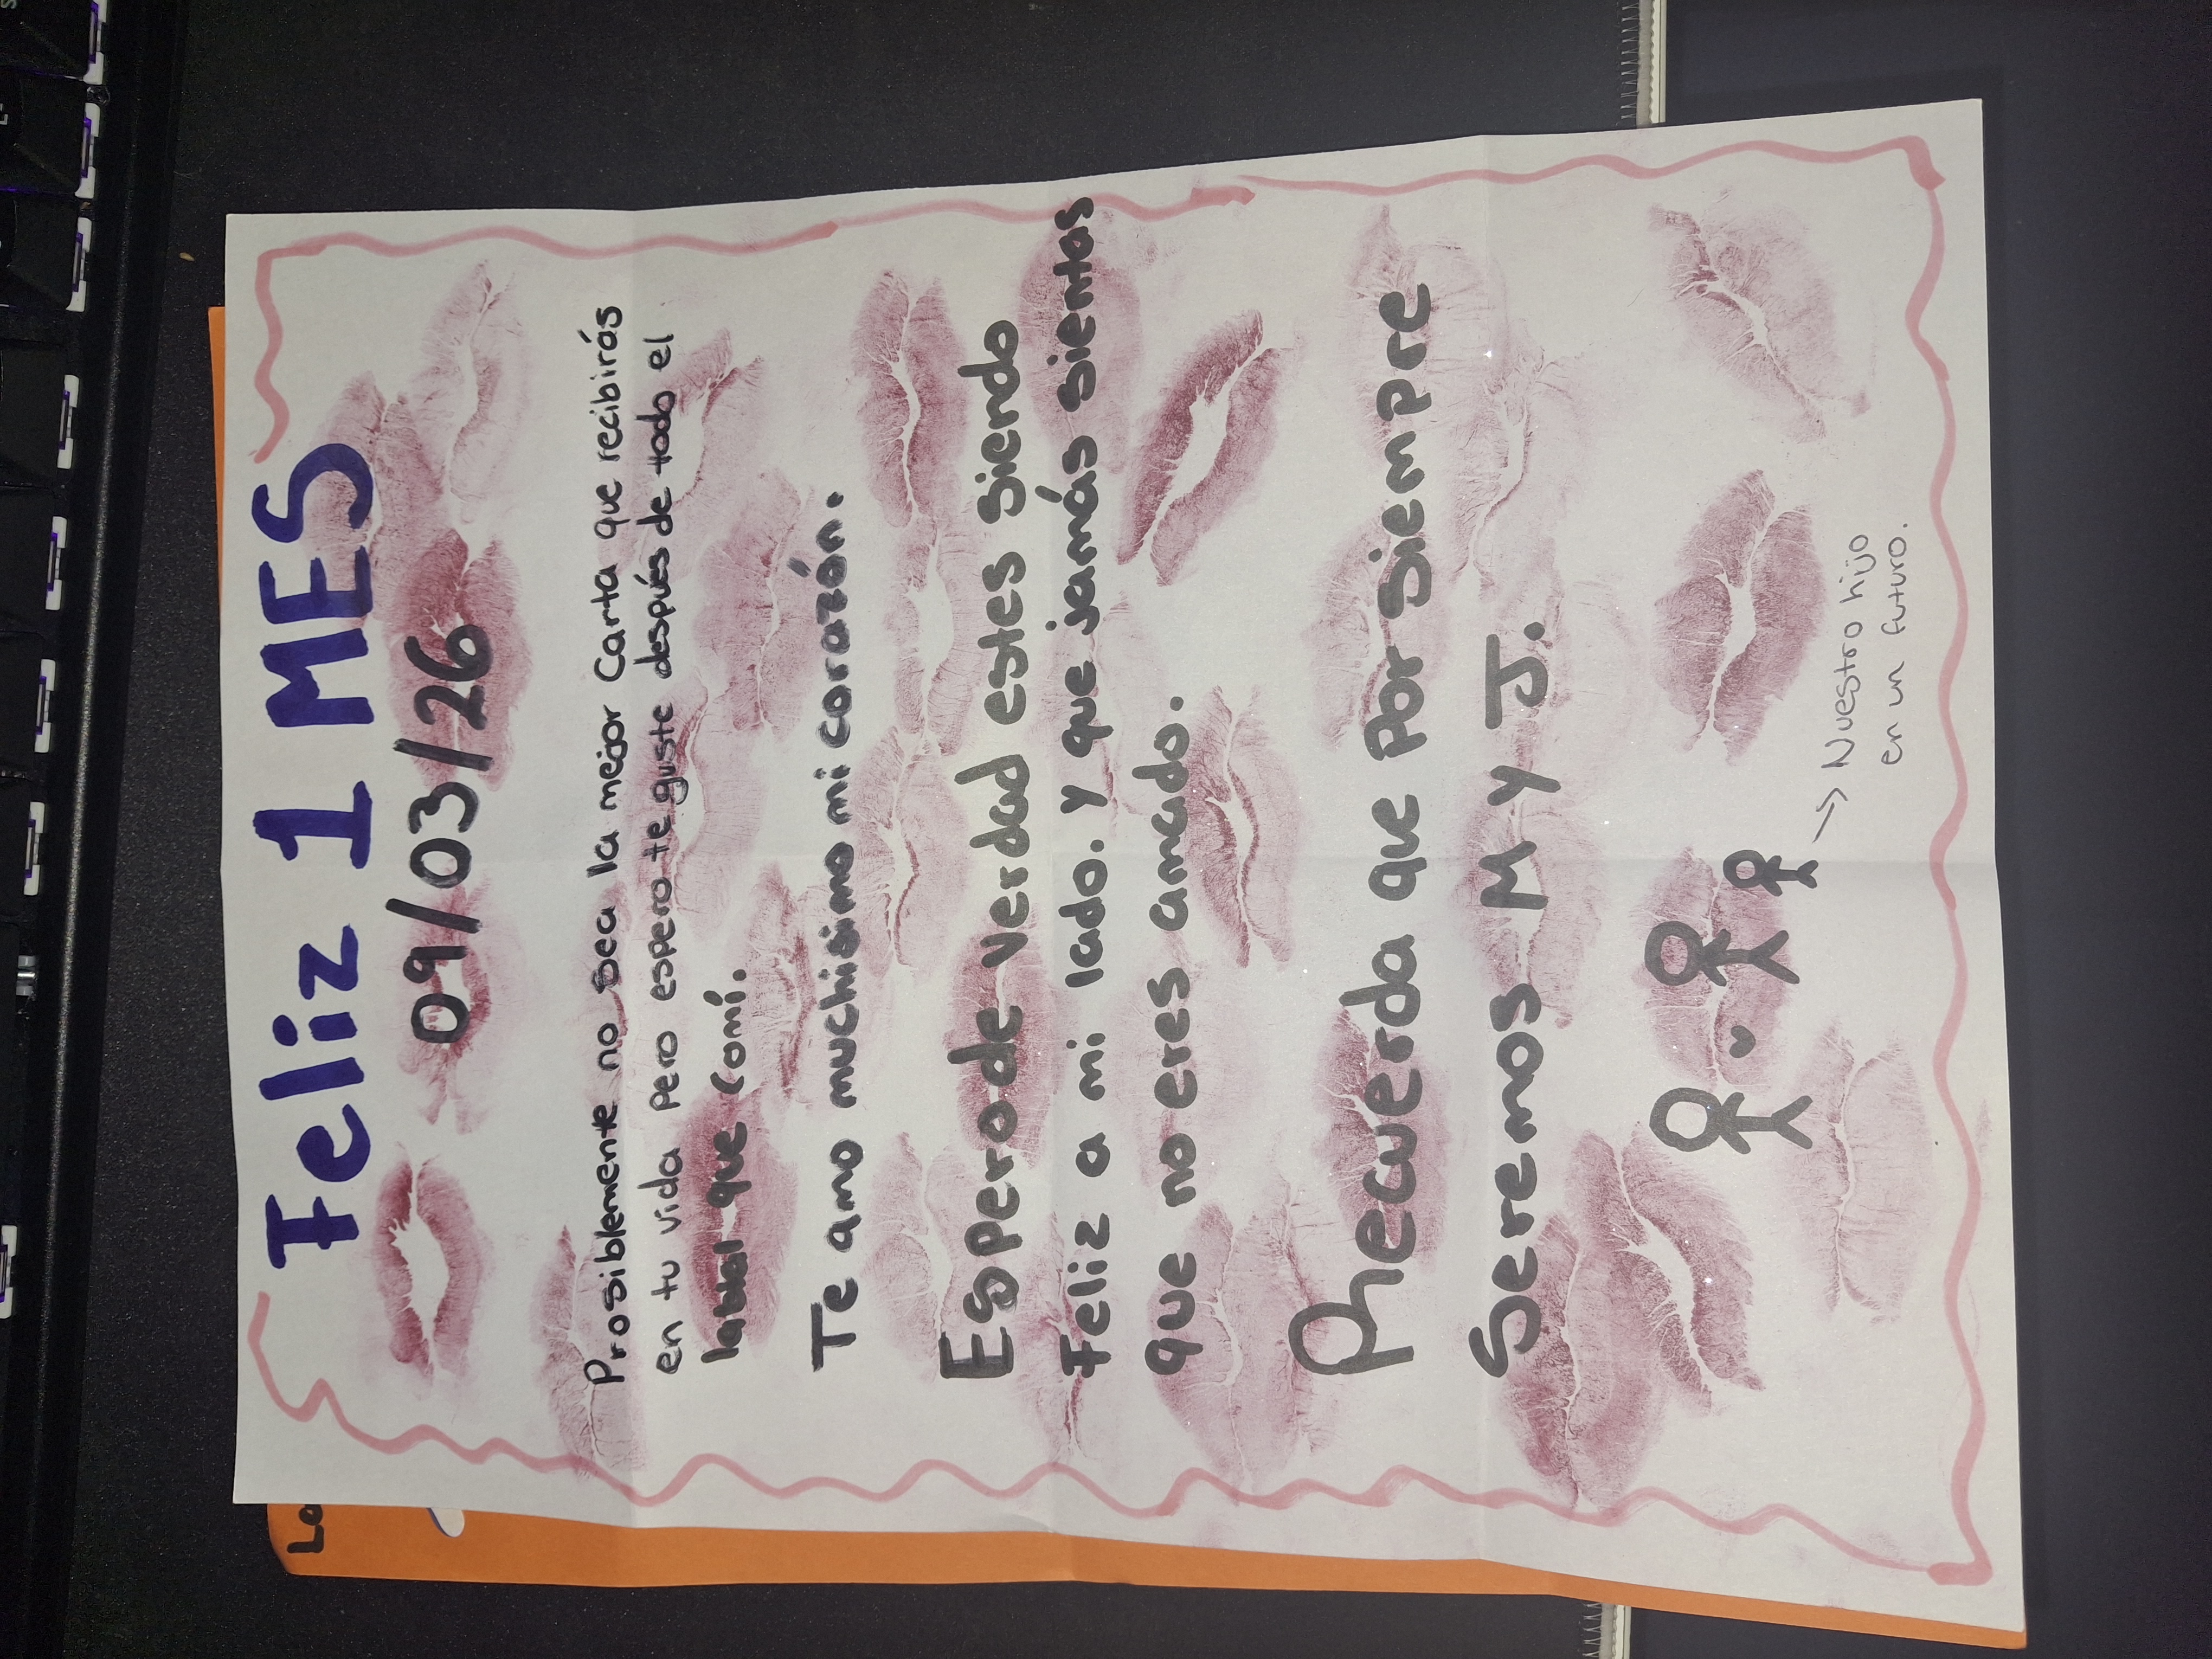 Feliz 1 MES
09/03/26
Prosiblemente no sea la mejor Carta que recibirás
en tu vida pero espero te guste después de todo el
labial que comí.
Te amo muchisimo mi corazón.
Espero de verdad estes siendo
Feliz a mi lado. y que jamás sientas
que no eres amado.
Recuerda que por siempre
Seremos M y J.
→ Nuestro hijo
en un futuro.